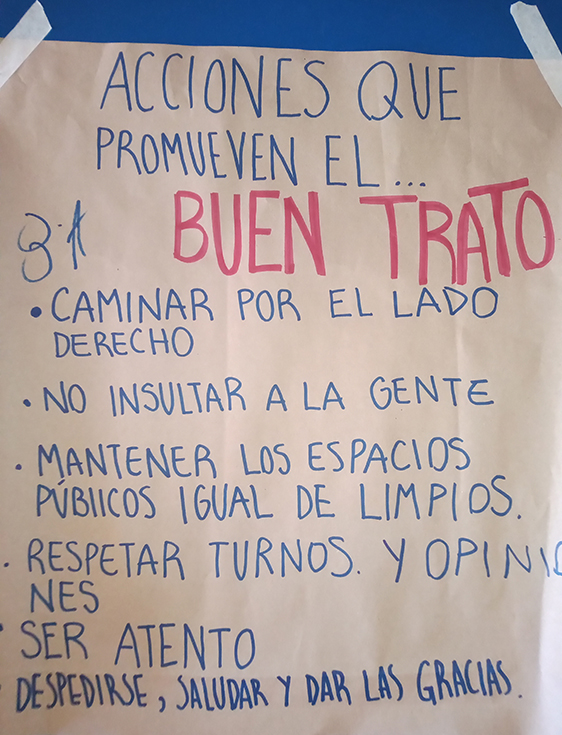 ACCIONES QUE
PROMUEVEN EL...
3·A BUEN TRATO
• CAMINAR POR EL LADO
DERECHO
• NO INSULTAR A LA GENTE
• MANTENER LOS ESPACIOS
PÚBIICOS IGUAL DE LIMPIOS.
• RESPETAR TURNOS. Y OPINIO
NES
• SER ATENTO
• DESPEDIRSE, SALUDAR Y DAR LAS GRACIAS.